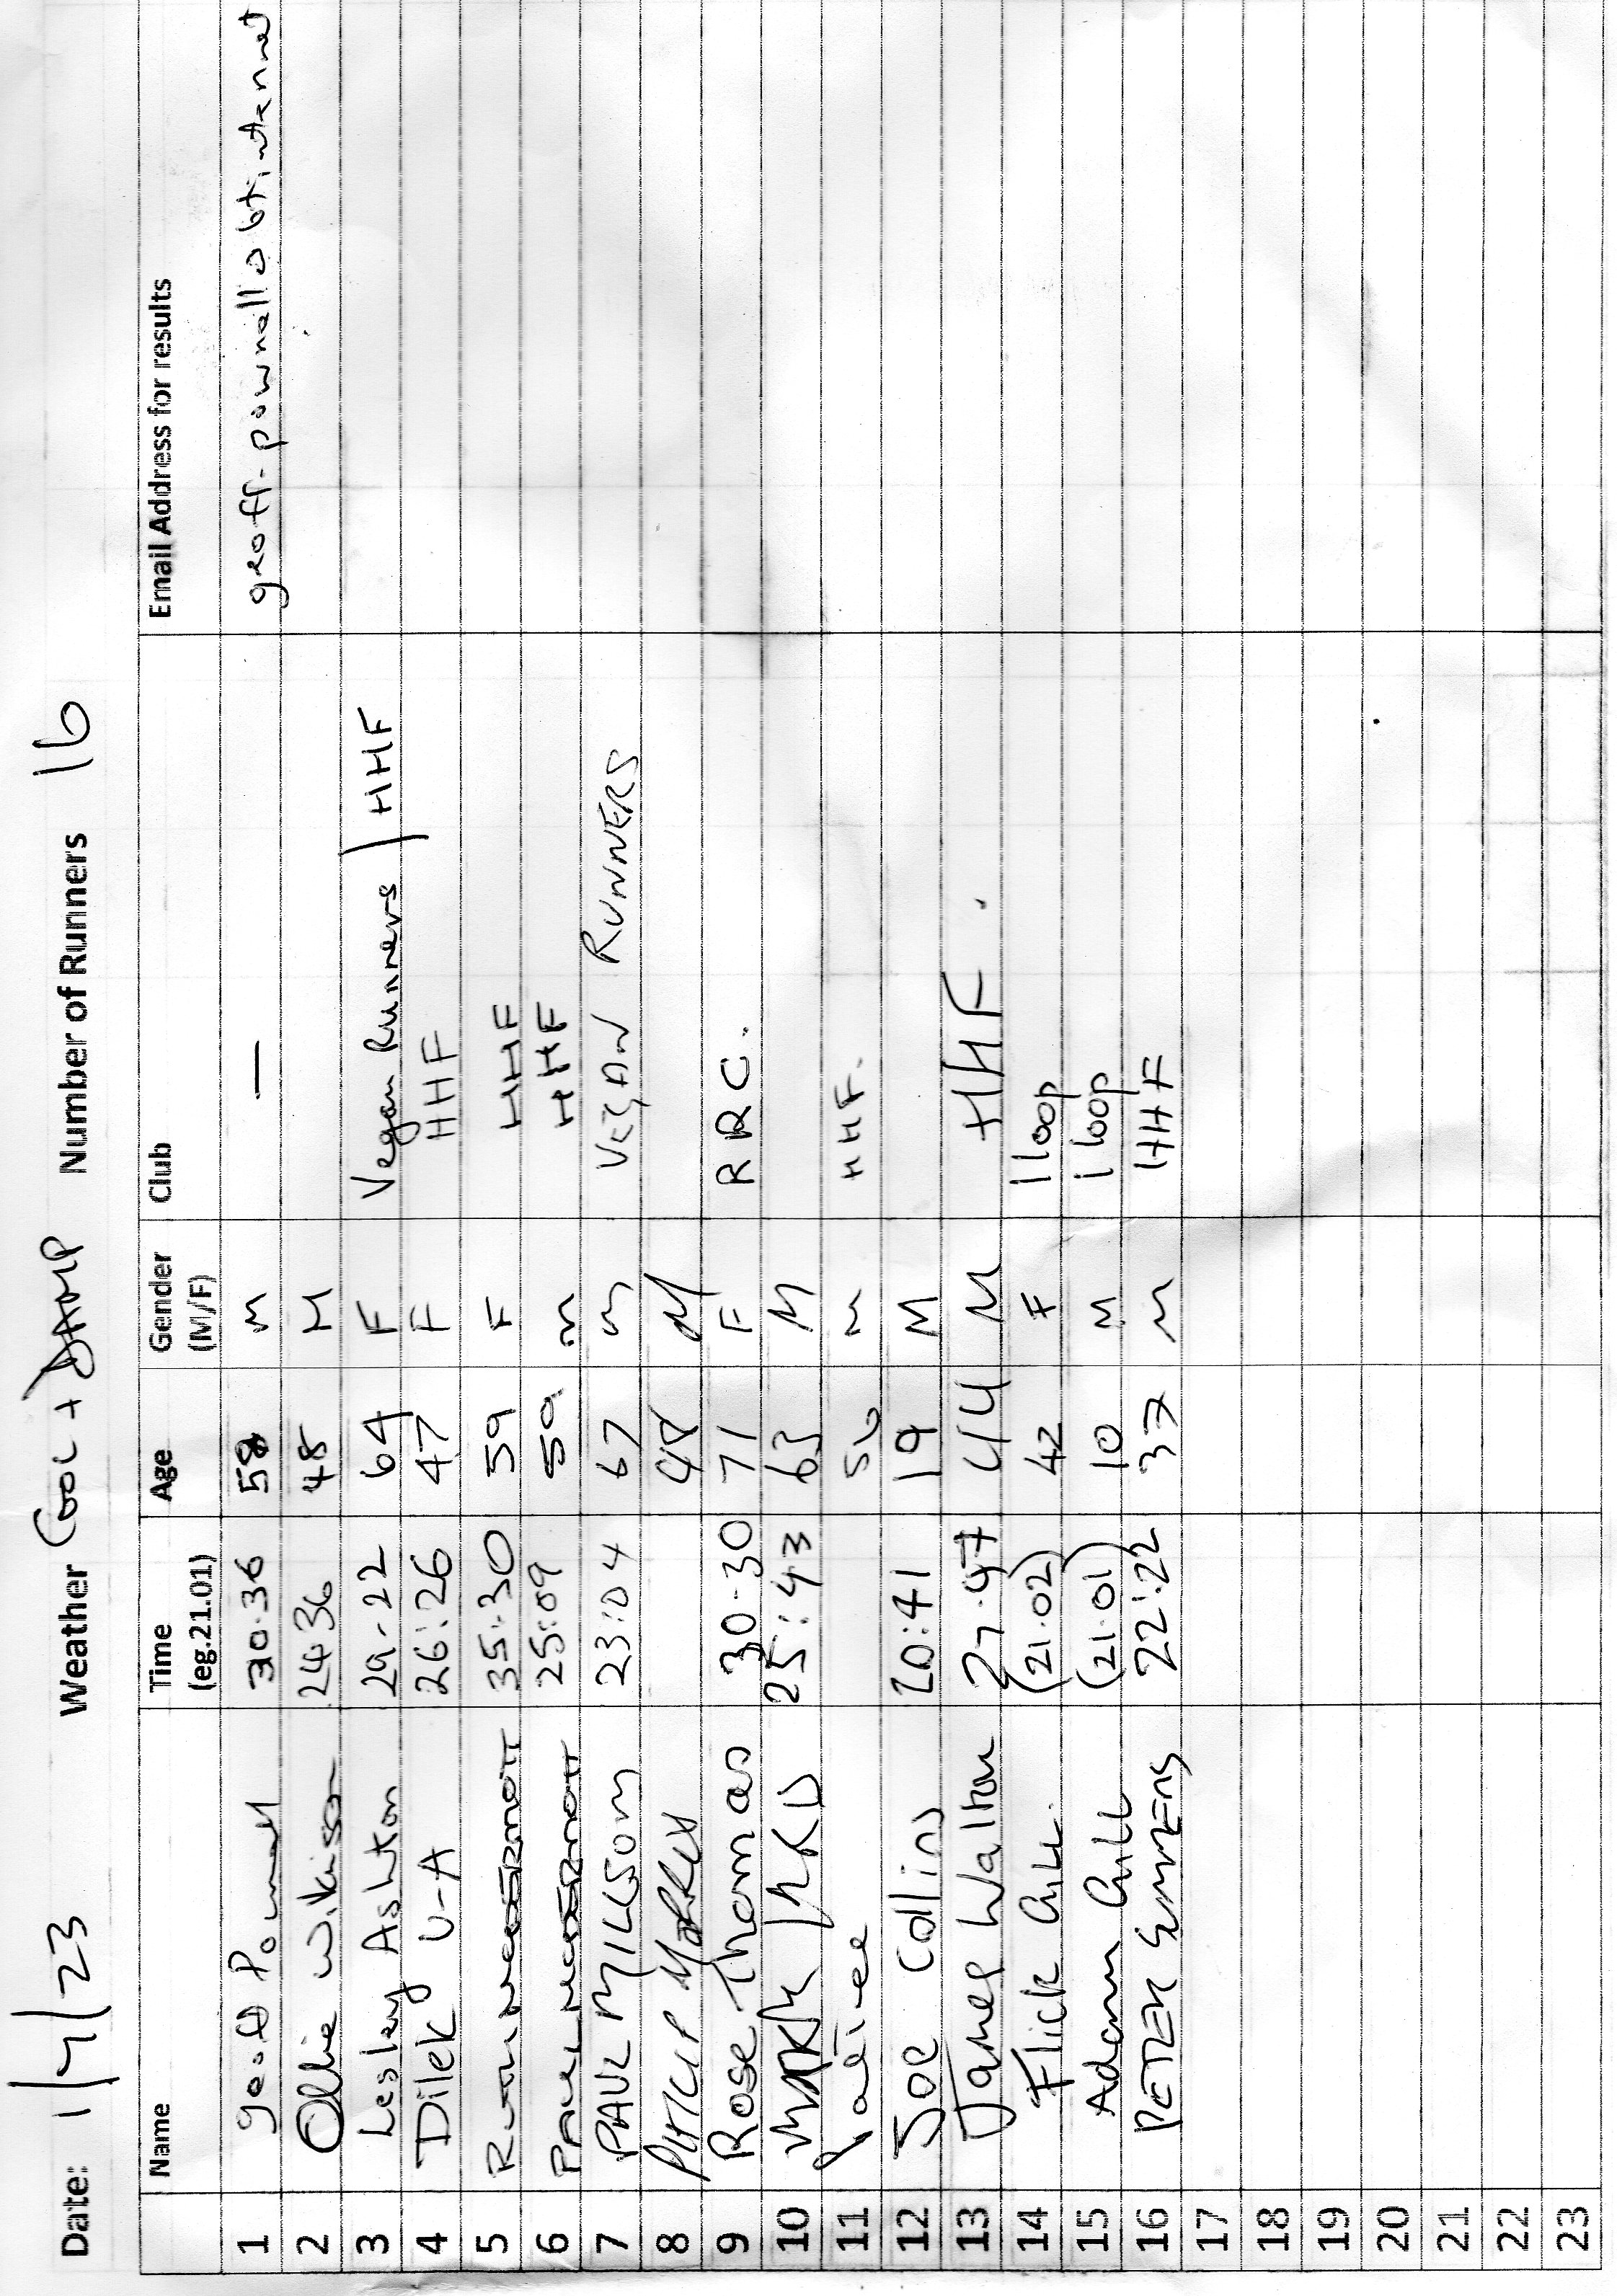 Date: 1/4/23 Weather Cool + DAMP Number of Runners 16
Name Time (eg.21.01) Age Gender (M/F) Club Email Address for results
1 Geoff Pownall 30.36 58 M — geoff-pownall@btinternet
2 Ollie Wilkinson 24 36 48 M
3 Lesley Ashton 29-22 64 F Vegan Runners / HHF
4 Dilek U-A 26:26 47 F HHF
5 35:30 59 F HHF
6 PAUL 25:09 59 M HHF
7 PAUL MILLSOM 23:04 67 M VEGAN RUNNERS
8 PHILIP 48 M
9 Rose Thomas 30-30 71 F RRC.
10 MARK 25:43 63 M
11 56 M HHF.
12 Joe Collins 20:41 19 M
13 James Walton 27.47 44 M HHF.
14 Flick (21.02) 42 F 1 loop
15 Adam (21.01) 10 M 1 loop
16 PETER 22:22 37 M HHF
17
18
19
20
21
22
23